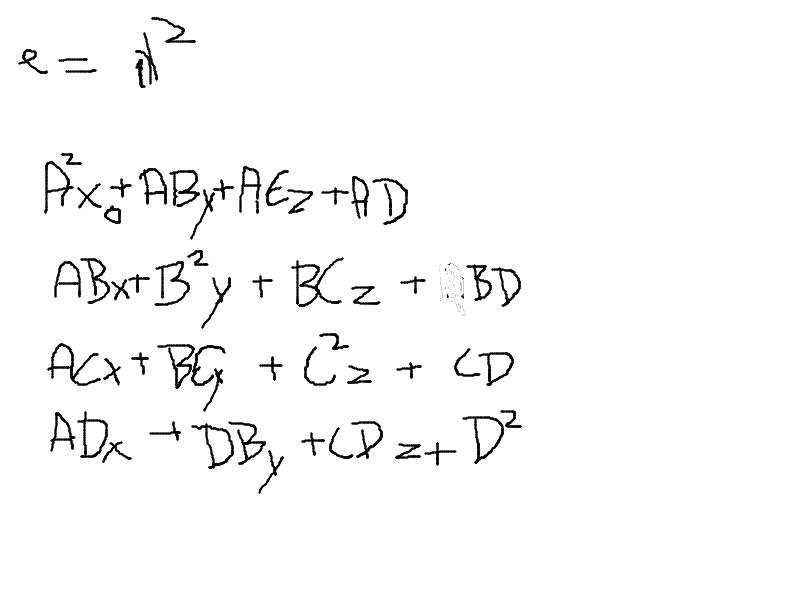 e = d²
A²x₀ + ABy + ACz + AD
ABx + B²y + BCz + BD
ACx + BCy + C²z + CD
ADx + DBy + CDz + D²